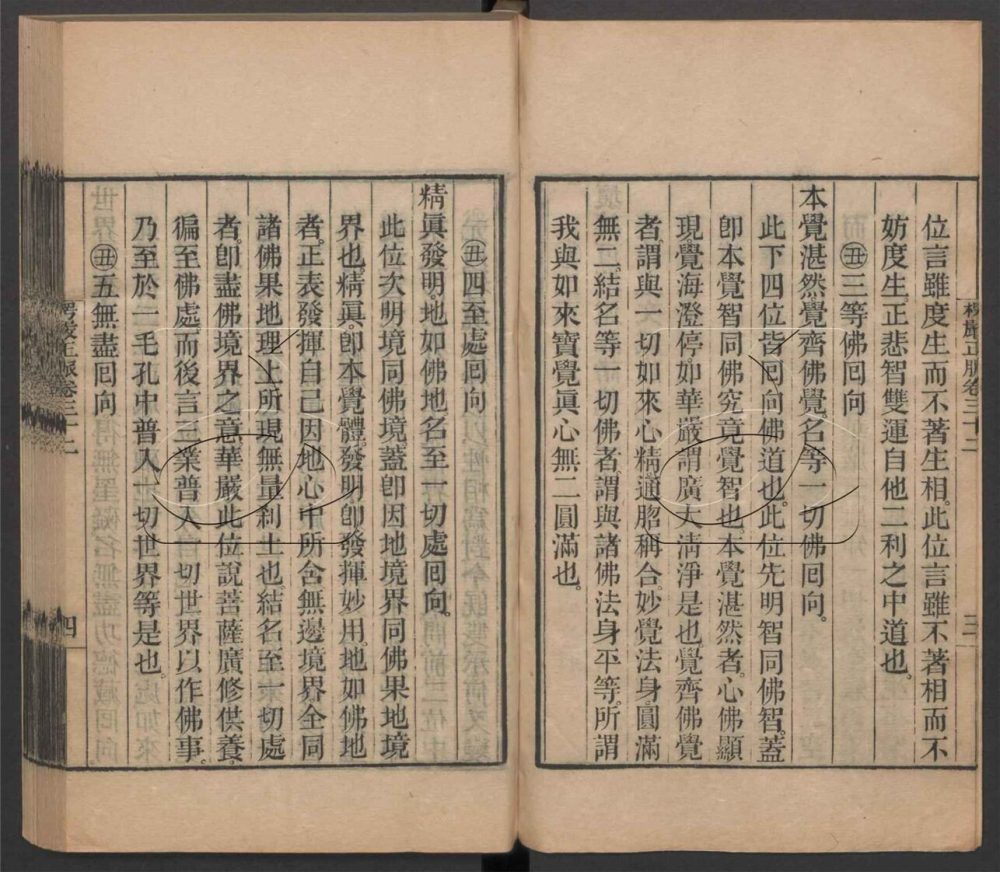 位言雖度生而不著生相。此位言雖不著相而不
妨度生。正悲智雙運自他二利之中道也。
㊄三等佛囘向
本覺湛然覺齊佛覺。名等一切佛囘向。
此下四位皆囘向佛道也。此位先明智同佛智。蓋
卽本覺智同佛究竟覺智也。本覺湛然者。心佛顯
現覺海澄停。如華嚴謂廣大淸淨是也。覺齊佛覺
者。謂與一切如來心精通㳷稱合。妙覺法身。圓滿
無二。結名等一切佛者。謂與諸佛法身平等。所謂
我與如來寶覺眞心無二圓滿也。
楞嚴正脈卷三十二
三
㊄四至處囘向
精眞發明。地如佛地名至一切處囘向。
此位次明境同佛境。蓋卽因地境界同佛果地境
界也。精眞。卽本覺體。發明。卽發揮妙用。地如佛地
者。正表發揮自己因地心中所含無邊境界。全同
諸佛果地理上所現無量刹土也。結名至一切處
者。卽盡佛境界之意。華嚴此位說菩薩廣修供養。
徧至佛處。而後言三業普入一切世界以作佛事。
乃至於一毛孔中普入一切世界等是也。
㊄五無盡囘向
楞嚴正脈卷三十二
四